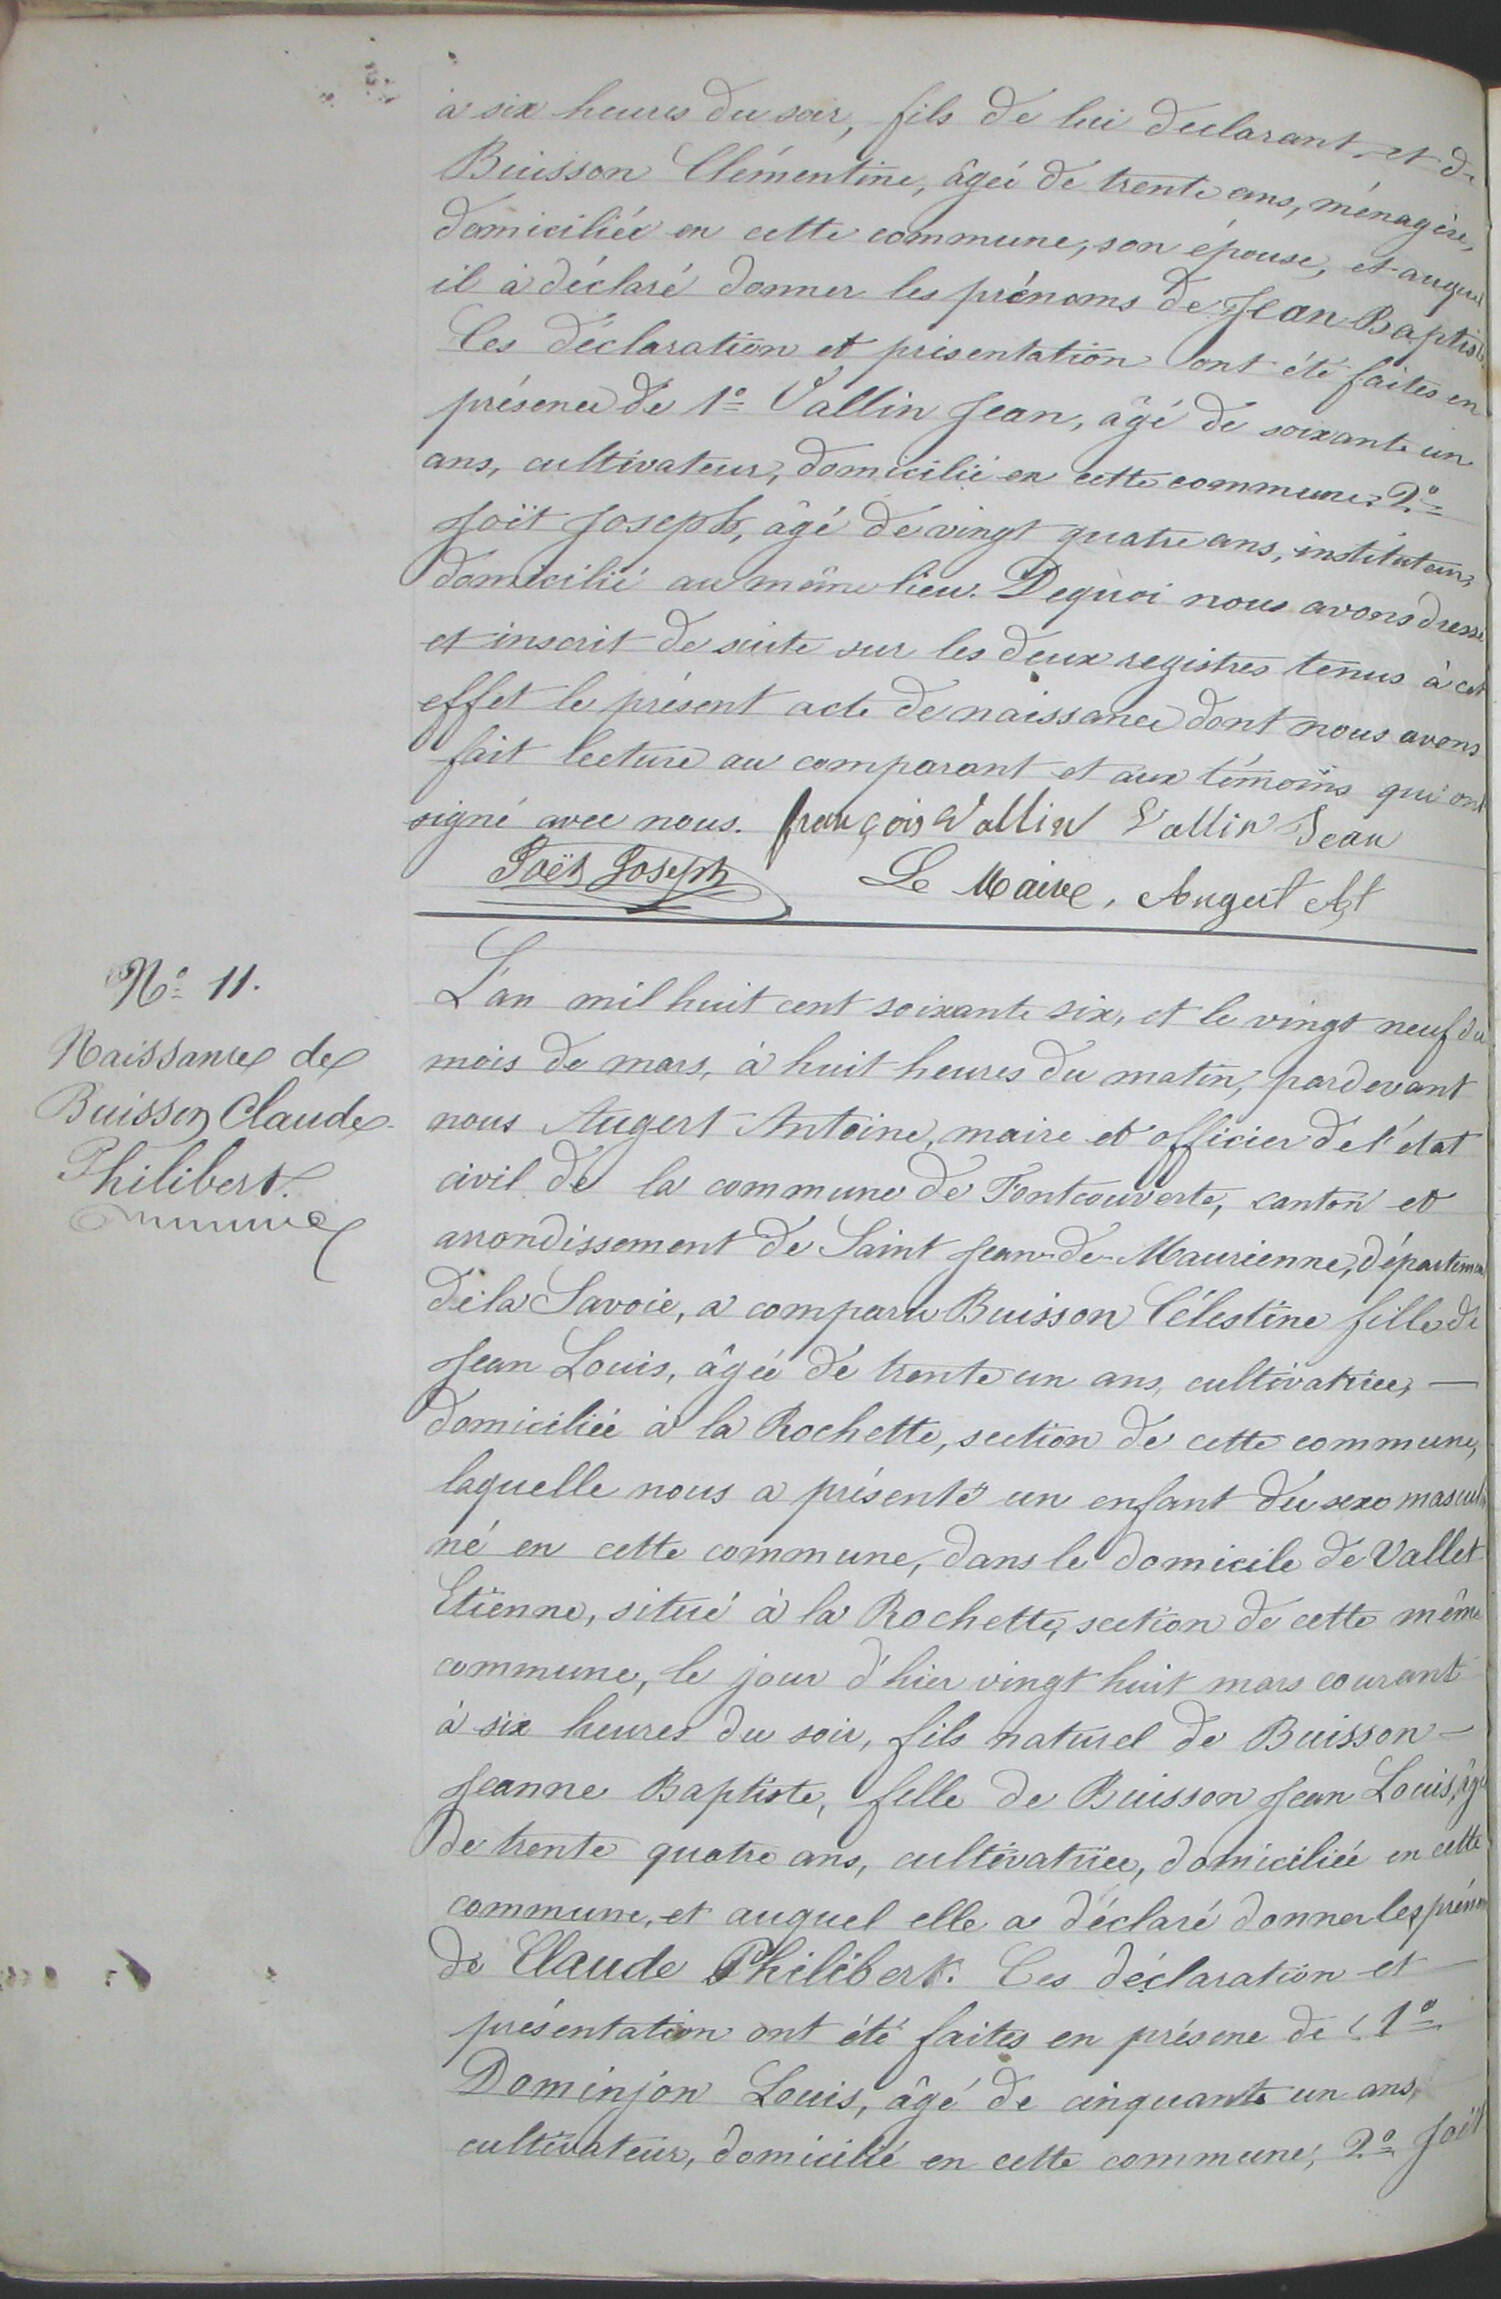 à six heures du soir, fils de lui déclarant et de
Buisson Clémentine, âgée de trente ans, ménagère,
domiciliée en cette commune, son épouse, et auquel
il à déclaré donner les prénoms de Jean Baptiste.
Ces déclaration et présentation ont été faites en
présence de 1º Vallin Jean, âgé de soixante un
ans, cultivateur, domicilié en cette commune; 2º
Joët Joseph, âgé de vingt quatre ans, instituteur,
domicilié au même lieu. De quoi nous avons dressé
et inscrit de suite sur les deux registres tenus à cet
effet le présent acte de naissance dont nous avons
fait lecture au comparant et aux témoins qui ont
signé avec nous. françois Vallin Vallin Jean
Joët Joseph Le Maire, Augert At
Nº 11.
Naissance de
Buisson Claude
Philibert.
L'an mil huit cent soixante six, et le vingt neuf du
mois de mars, à huit heures du matin, pardevant
nous Augert Antoine, maire et officier de l'état
civil de la commune de Fontcouverte, canton et
arrondissement de Saint Jean-de-Maurienne, département
de la Savoie, a comparu Buisson Célestine fille de
Jean Louis, âgée de trente un ans, cultivatrice, —
domiciliée à la Rochette, section de cette commune,
laquelle nous a présenté un enfant du sexe masculin
né en cette commune, dans le domicile de Vallet
Etienne, situé à la Rochette, section de cette même
commune, le jour d'hier vingt huit mars courant
à six heures du soir, fils naturel de Buisson —
Jeanne Baptiste, fille de Buisson Jean Louis, âgée
de trente quatre ans, cultivatrice, domiciliée en cette
commune, et auquel elle a déclaré donner les prénoms
de Claude Philibert. Ces déclaration et —
présentation ont été faites en présence de 1º
Dominjon Louis, âgé de cinquante un ans,
cultivateur, domicilié en cette commune; 2º Joët